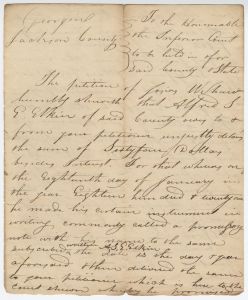 Georgia
Jackson County
To the Honourable
the Inferior Court
to be held in & for
Said County & State
The petition of James
humbly sheweth that Alfred L
G Elkin of said County owes to &
from your petitioner unjustly detains
the sum of Sixtyfour Dollars
besides Interest. For that whereas on
the Eighteenth day of January in
the year Eighteen hundred & twenty
he made his certain instrument in
writing commonly called a promissory
note with to the same
subscribed the date is the day & year
aforesaid & then delivered the same
to your petitioner which is here to the
court shewn whereby he promised